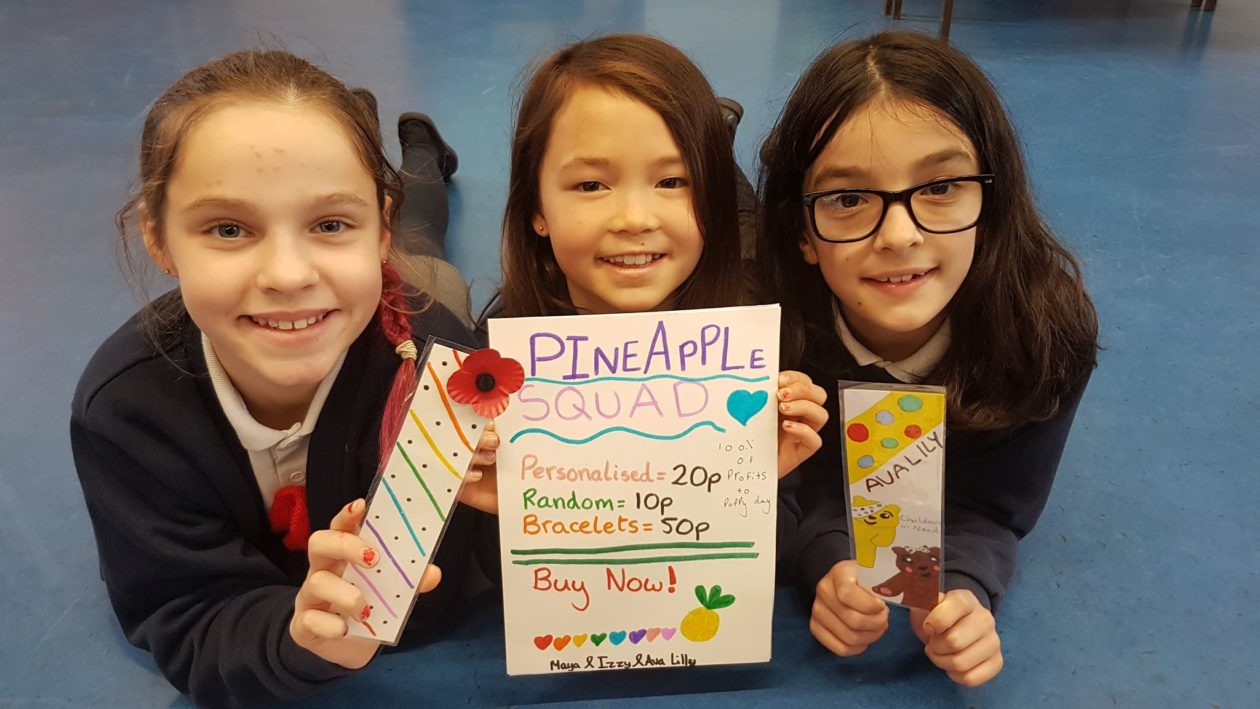 PINEAPPLE
SQUAD
100% of Profits to Poppy day
Personalised = 20p
Random = 10p
Bracelets = 50p
Buy Now!
Maya & Izzy & Ava Lilly
AVA LILY
Children
in Need